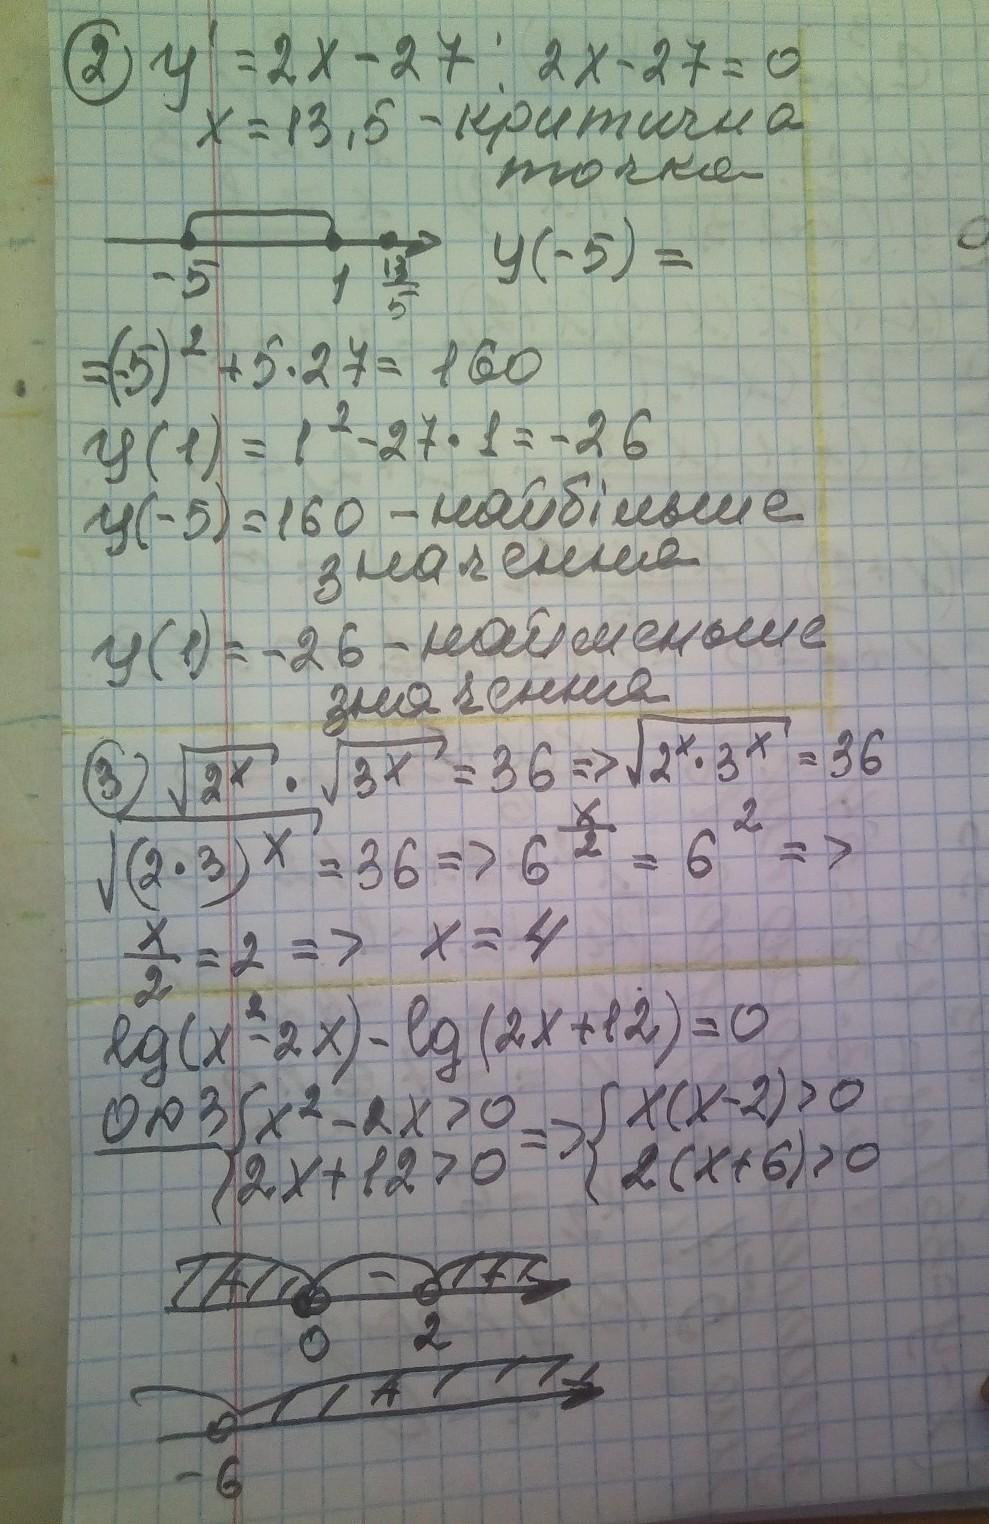 2) y' = 2x - 27; 2x - 27 = 0
x = 13,5 - критична
точка
-5 1 13,5 y(-5) =
= (-5)² + 5·27 = 160
y(1) = 1² - 27·1 = -26
y(-5) = 160 - найбільше
значення
y(1) = -26 - найменьше
значення
3) √2ˣ · √3ˣ = 36 => √(2ˣ·3ˣ) = 36
√(2·3)ˣ = 36 => 6^(x/2) = 6² =>
x/2 = 2 => x = 4
lg(x² - 2x) - lg(2x + 12) = 0
ОДЗ { x² - 2x > 0 => { x(x-2) > 0
{ 2x + 12 > 0 { 2(x+6) > 0
+ - +
0 2
+
-6